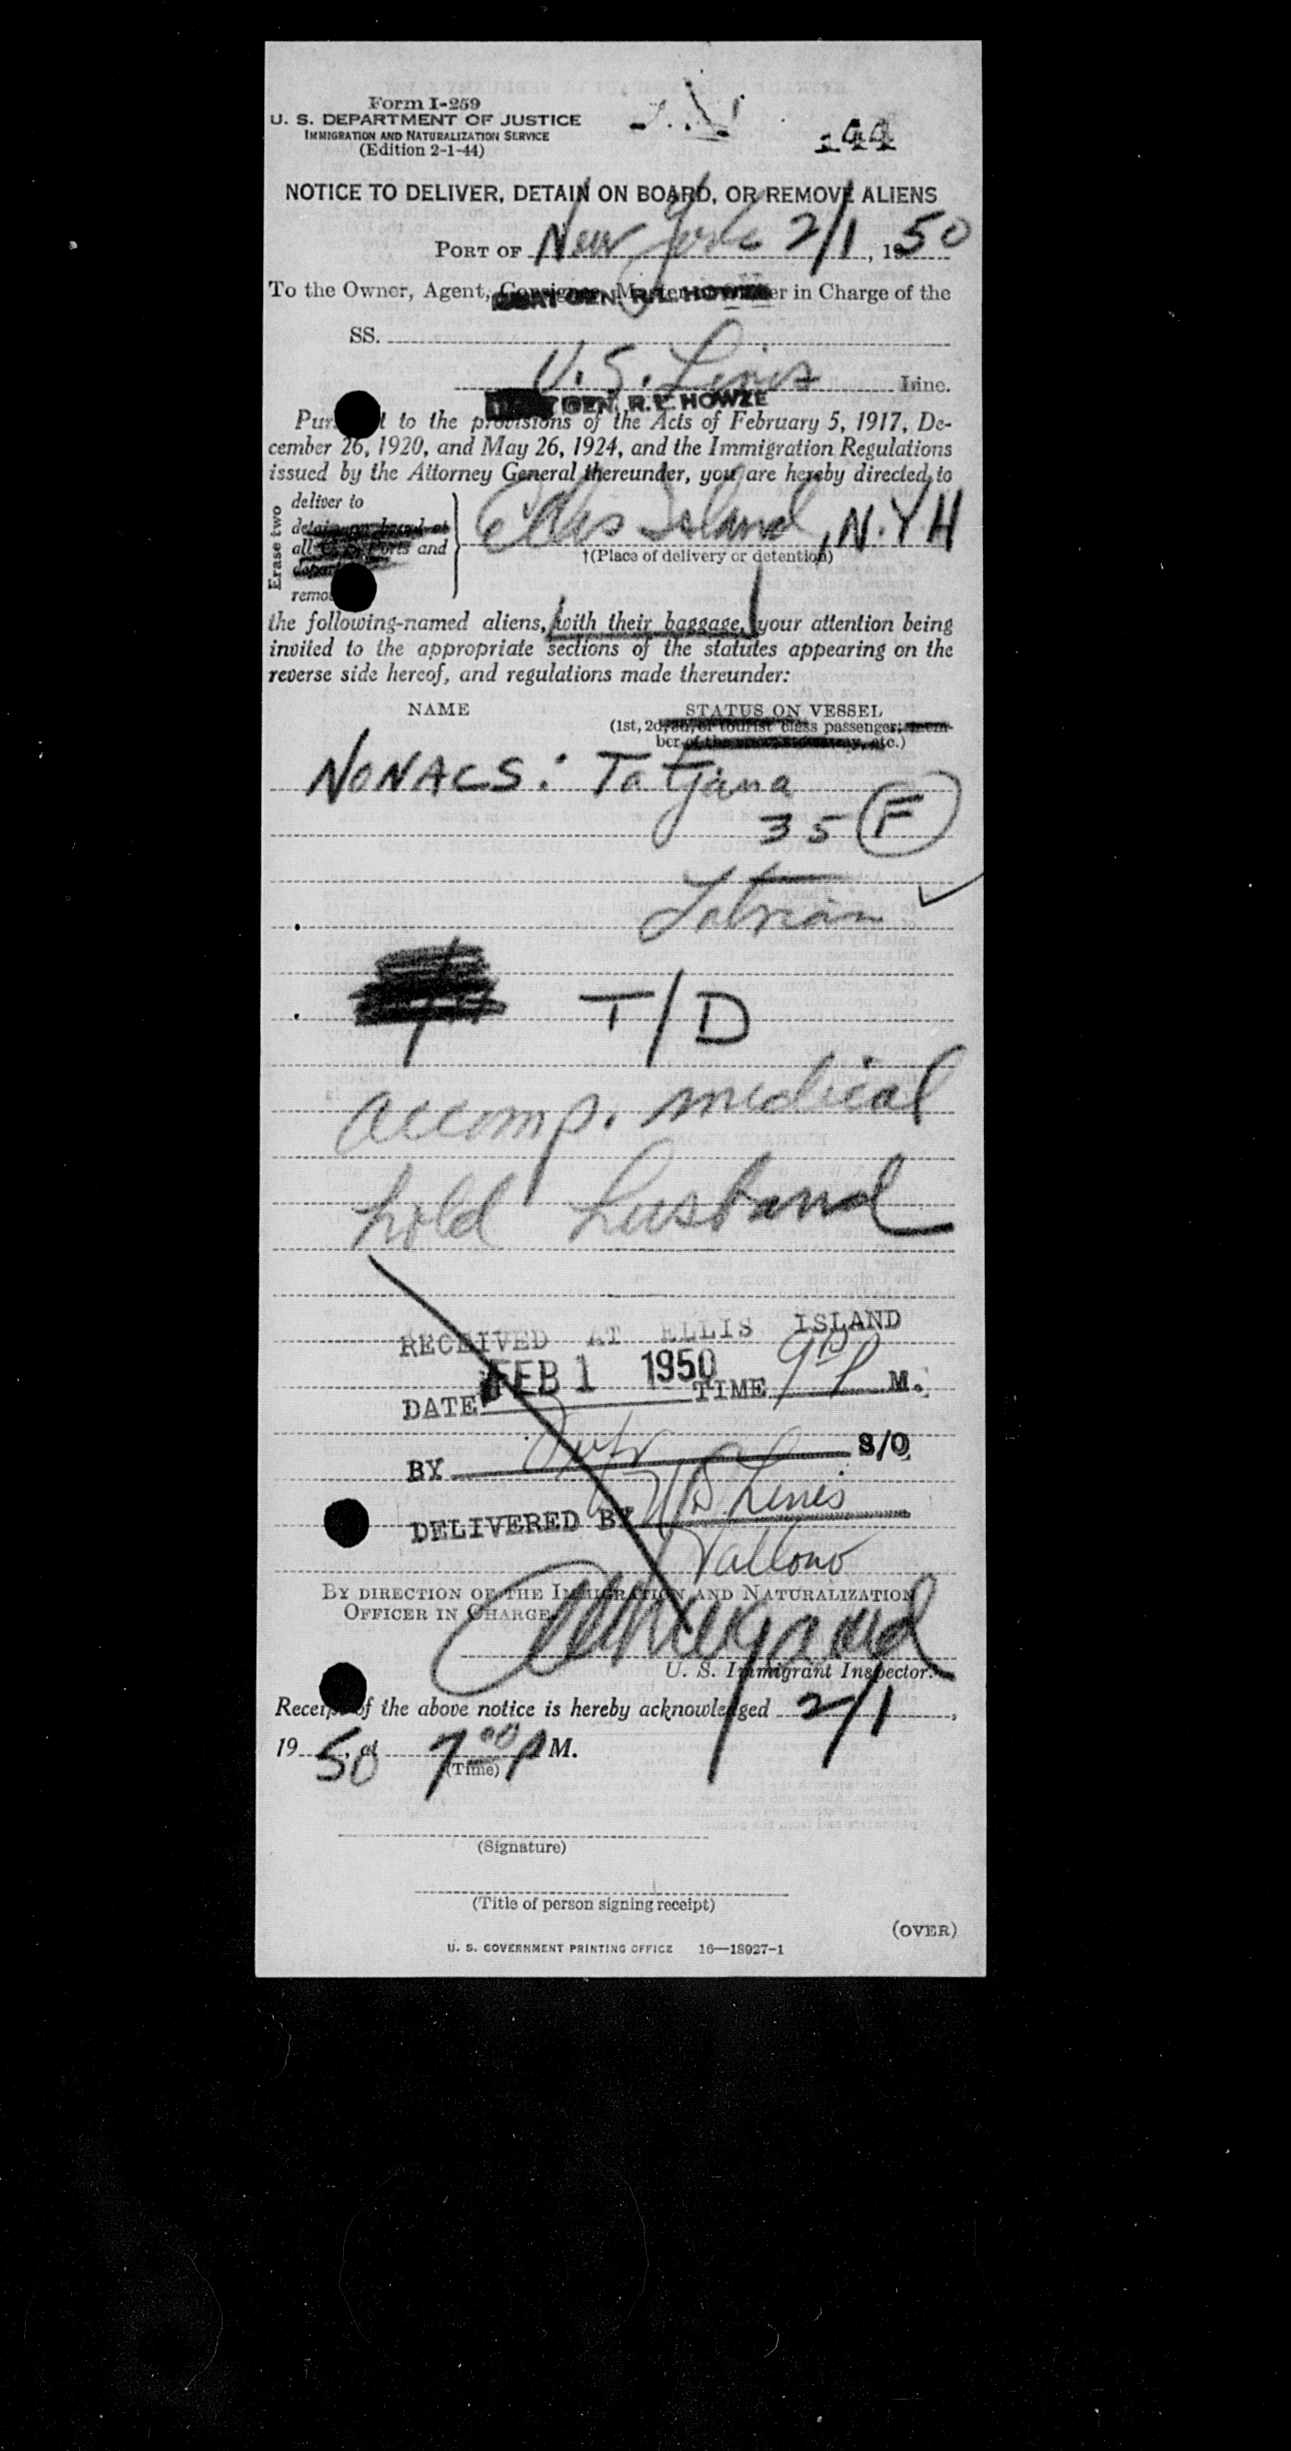 Form I-259
U. S. DEPARTMENT OF JUSTICE
IMMIGRATION AND NATURALIZATION SERVICE
(Edition 2-1-44)
144
NOTICE TO DELIVER, DETAIN ON BOARD, OR REMOVE ALIENS
PORT OF New York 2/1, 1950
To the Owner, Agent, Consignee, Master in Charge of the
GEN. R.L. HOWZE
SS.
U. S. Lines Line.
GEN. R.L. HOWZE
to the provisions of the Acts of February 5, 1917, De-
cember 26, 1920, and May 26, 1924, and the Immigration Regulations
issued by the Attorney General thereunder, you are hereby directed to
Erase two
deliver to
and
Ellis Island, N.Y.H
†(Place of delivery or detention)
the following-named aliens, with their baggage, your attention being
invited to the appropriate sections of the statutes appearing on the
reverse side hereof, and regulations made thereunder:
NAME STATUS ON VESSEL
(1st, 2d, 3d, or tourist class passenger; mem-
ber etc.)
NONACS: Tatjana
35 F
Latvian
T/D
accomp. medical
hold husband
RECEIVED AT ELLIS ISLAND
DATE FEB 1 1950 TIME P M.
BY S/O
DELIVERED BY US Lines
BY DIRECTION OF THE IMMIGRATION AND NATURALIZATION
OFFICER IN CHARGE
U. S. Immigrant Inspector.
Receipt of the above notice is hereby acknowledged 2/1,
1950, at 7 00 P M.
(Time)
(Signature)
(Title of person signing receipt)
(OVER)
U. S. GOVERNMENT PRINTING OFFICE 16—18927-1